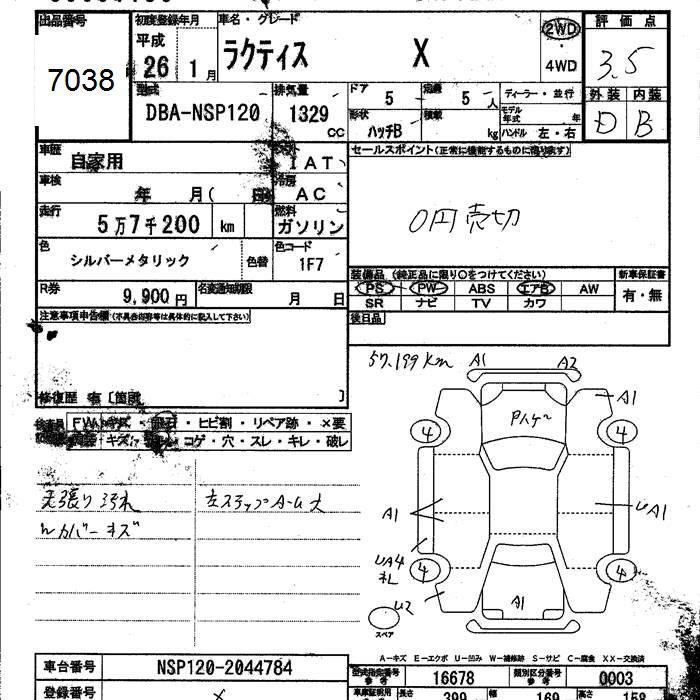 出品番号 初度登録年月 車名・グレード 評価点
7038 平成 26 1月 ラクティス X 2WD ・ 4WD 3.5
型式 DBA-NSP120 排気量 1329 CC
ドア 5 定員 5 人 ディーラー・並行 外装 内装
形状 ハッチB 積載 kg モデル年式 年 ハンドル 左・右 D B
車歴 自家用 シフト IAT
セールスポイント(正常に機能するものに限ります)
車検 年 月( 日) 冷房 AC
0円売切
走行 5万7千200 km 燃料 ガソリン
色 シルバーメタリック 色替 色コード 1F7
装備品 (純正品に限り○をつけてください) 新車保証書
R券 9,900円 名変通知期限 月 日
PS PW ABS エアB AW 有・無
SR ナビ TV カワ
注意事項申告欄(不具合箇所等は具体的に記入して下さい) 後日品
57,199km A1 A2
修復歴 有 [箇所 ]
A1
FW キズ・飛石・ヒビ割・リペア跡・×要
キズ・コゲ・穴・スレ・キレ・破し
4 4
天張り汚れ 左ステップA-U大
カバーキズ
A1 UA1
UA4
4 4
U2 A1
スペア
A-キズ E-エクボ U-凹み W-補修跡 S-サビ C-腐食 XX-交換済
車台番号 NSP120-2044784 型式指定番号 参考 16678 類別区分番号 参考 0003
登録番号 長さ 399 幅 169 高さ 158